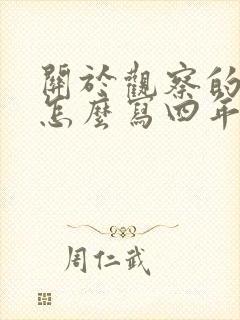 關於觀察的
怎麼寫四年
周仁武